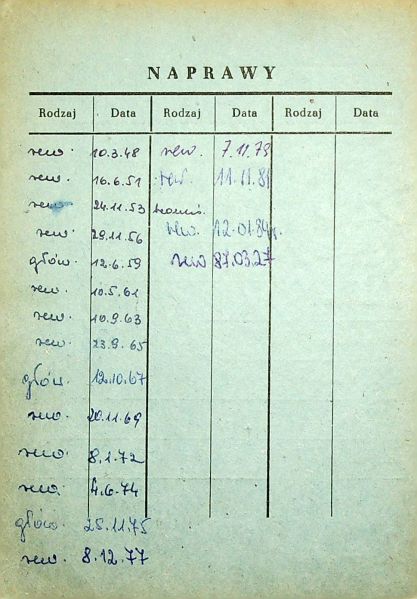 NAPRAWY
Rodzaj Data Rodzaj Data Rodzaj Data
rew. 10.3.48 rew. 7.11.79
rew. 16.6.51 rew. 11.11.81
rew. 24.11.53
rew. 29.11.56 rew. 12.01.84r.
głów. 12.6.59 rew 87.03.27
rew. 10.5.61
rew. 10.9.63
rew. 23.9.65
głów. 12.10.67
rew. 20.11.69
rew. 8.1.72
rew. 4.6.74
głów. 25.11.75
rew. 8.12.77